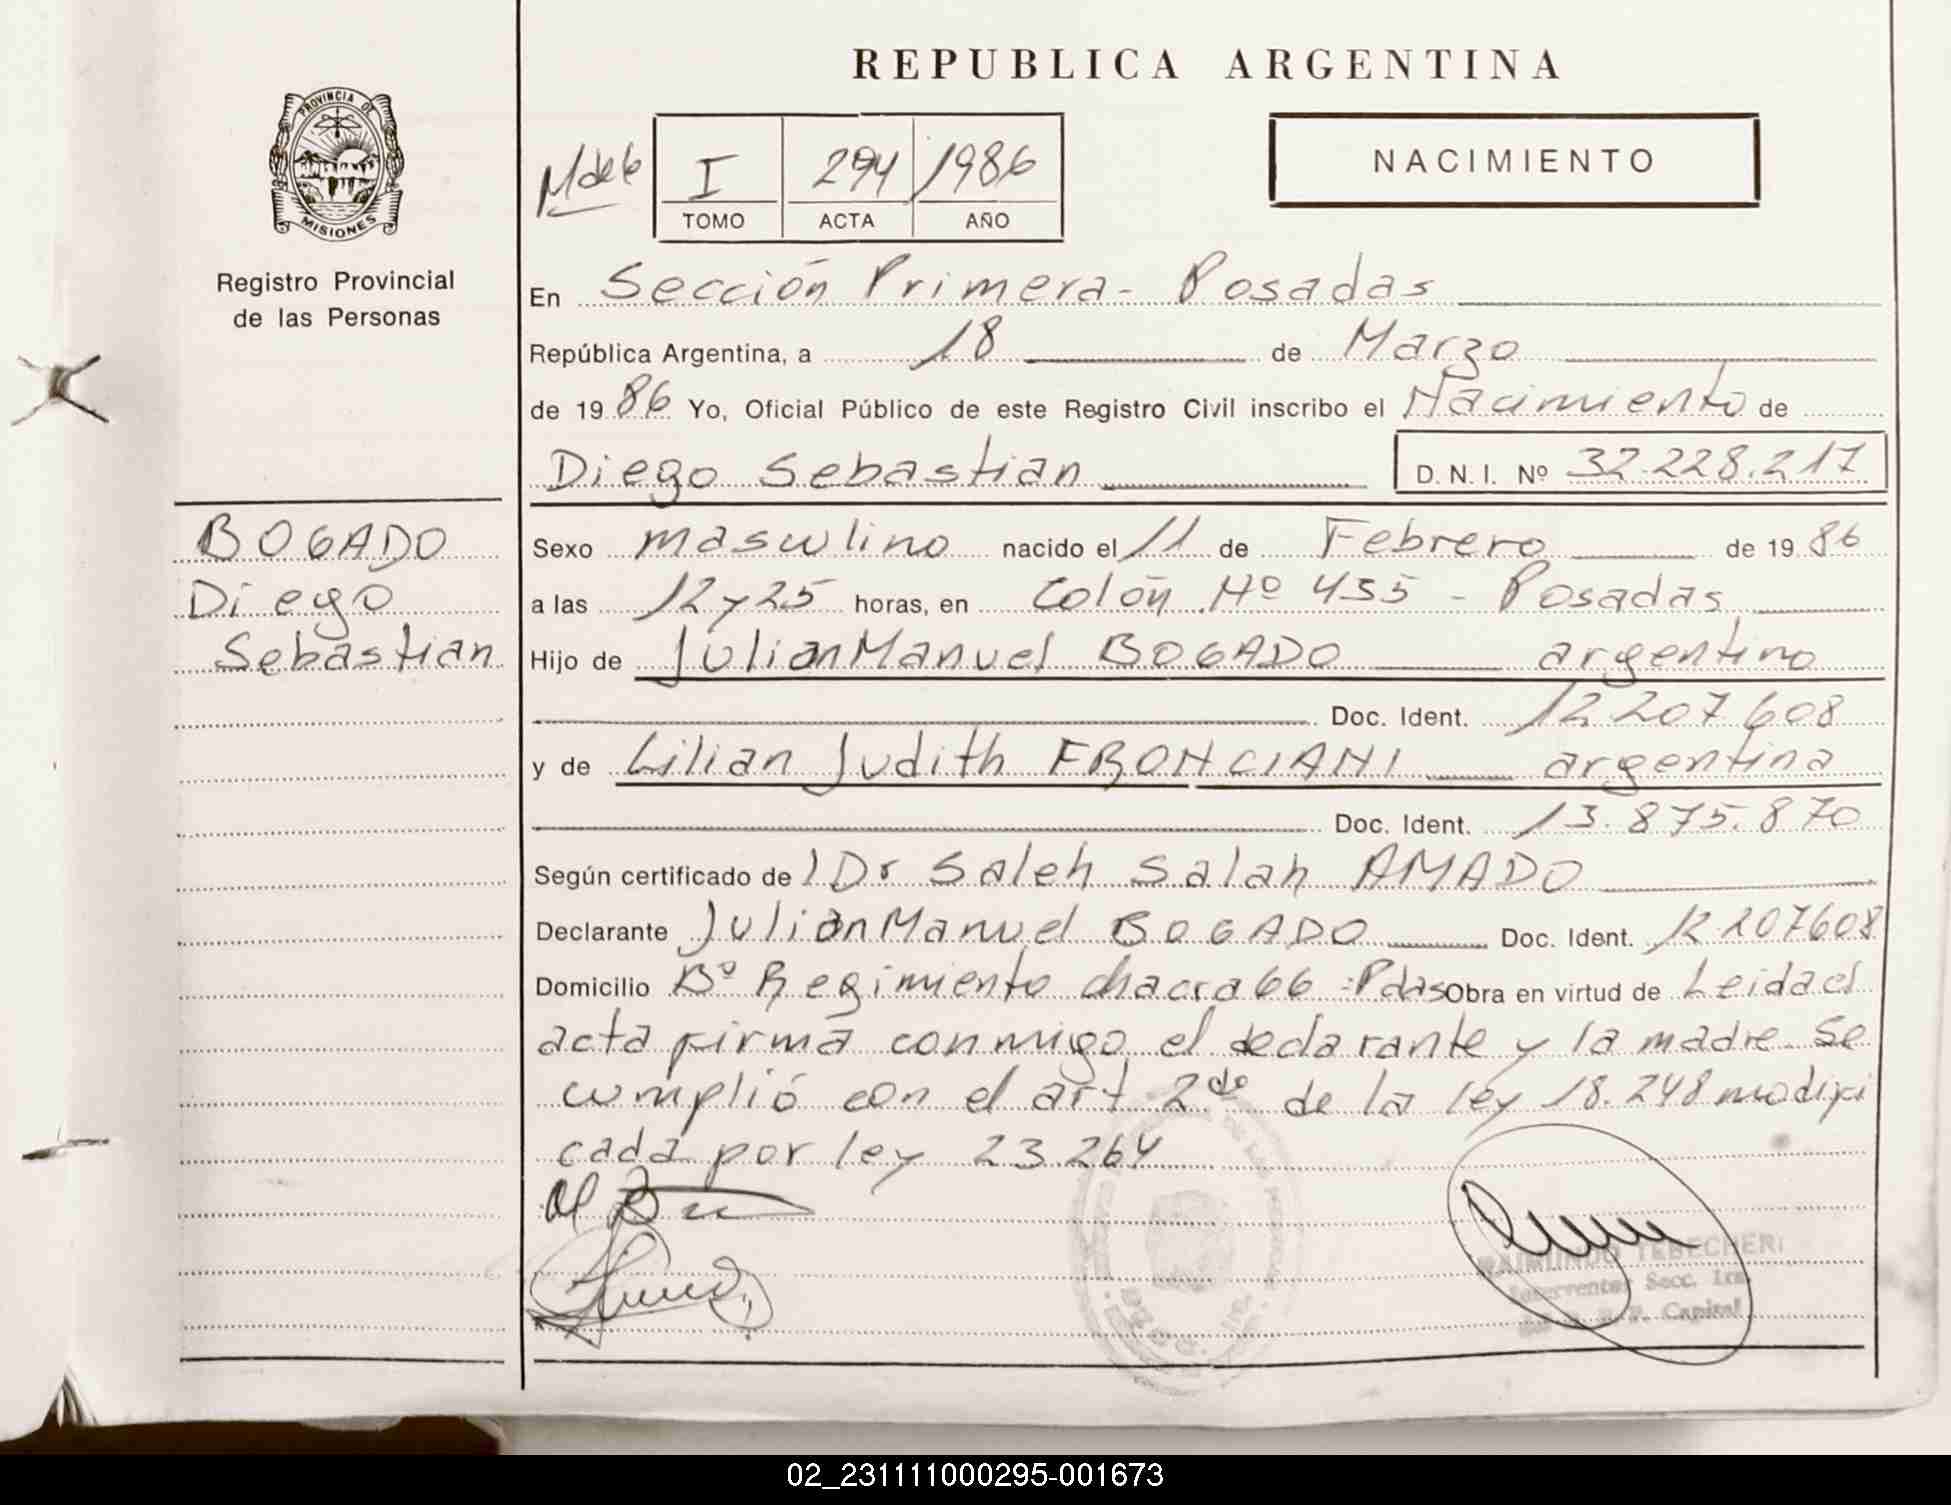 REPUBLICA ARGENTINA
PROVINCIA DE
MISIONES
Registro Provincial
de las Personas
I 294 1986
TOMO ACTA AÑO
NACIMIENTO
En Sección Primera - Posadas
República Argentina, a 18 de Marzo
de 1986 Yo, Oficial Público de este Registro Civil inscribo el Nacimiento de
Diego Sebastian D.N.I. Nº 32.228.217
BOGADO
Diego
Sebastian
Sexo masculino nacido el 11 de Febrero de 1986
a las 12 y 25 horas, en Colón Nº 435 - Posadas
Hijo de Julian Manuel BOGADO argentino
Doc. Ident. 12 207 608
y de Lilian Judith FRONCIANI argentina
Doc. Ident. 13.875.870
Según certificado de Dr Saleh Salah AMADO
Declarante Julian Manuel BOGADO Doc. Ident. 12 207608
Domicilio Bº Regimiento chacra 66 - Pdas Obra en virtud de Leida el
acta firma conmigo el declarante y la madre. Se
cumplió con el art 2do de la ley 18.248 modifi
cada por ley 23.264
RAIMUNDO TEBECHERI
Interventor Secc. 1ra.
R. P. Capital
02_231111000295-001673